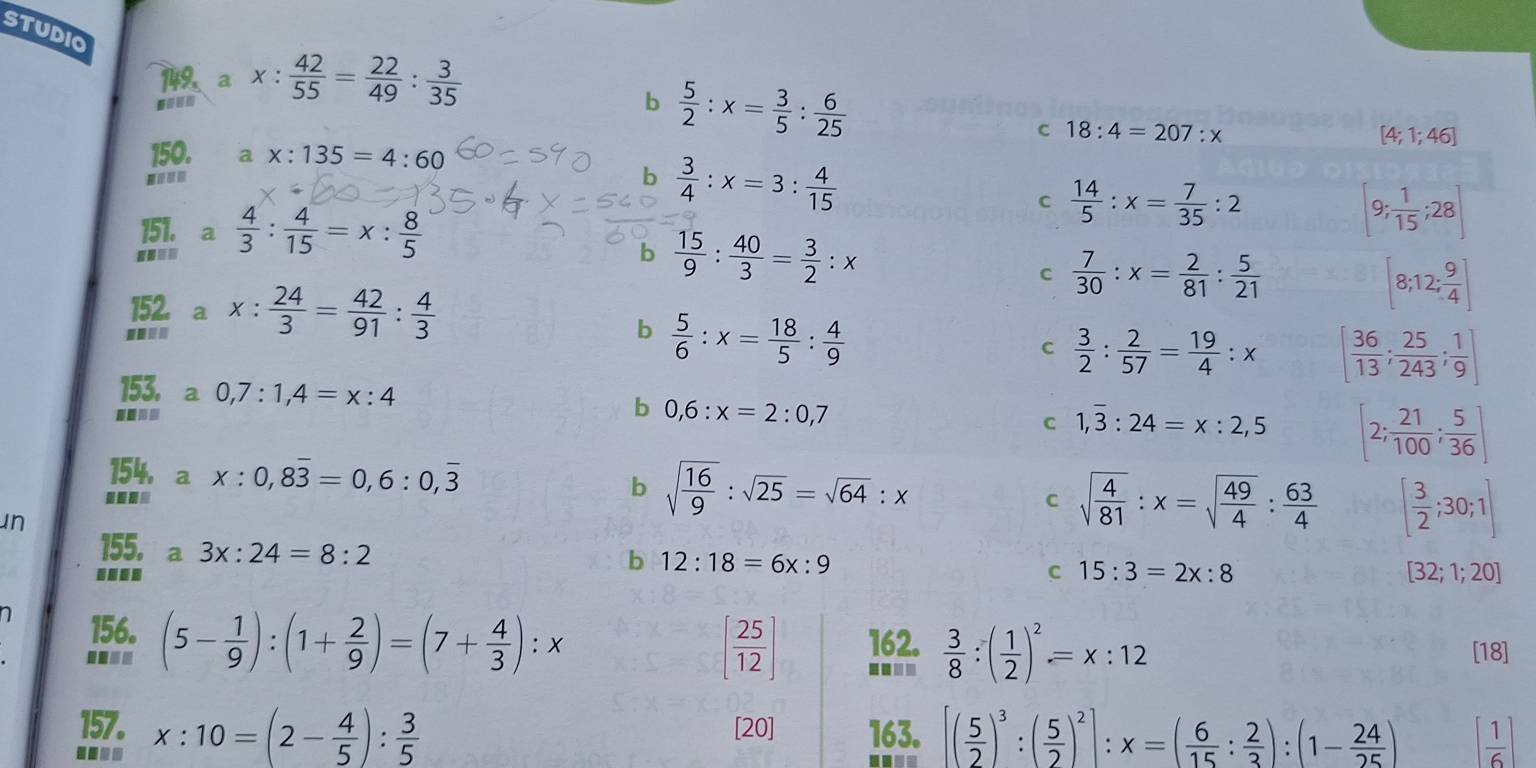 STUDIO
149. a x : 42/55 = 22/49 : 3/35 b 5/2 : x = 3/5 : 6/25 c 18 : 4 = 207 : x [4; 1; 46]
150. a x : 135 = 4 : 60 60 = 540 b 3/4 : x = 3 : 4/15 c 14/5 : x = 7/35 : 2 [9; 1/15; 28]
x · 60 = 135 · 4 x = 540/60 = 9
151. a 4/3 : 4/15 = x : 8/5 b 15/9 : 40/3 = 3/2 : x c 7/30 : x = 2/81 : 5/21 [8; 12; 9/4]
152. a x : 24/3 = 42/91 : 4/3 b 5/6 : x = 18/5 : 4/9 c 3/2 : 2/57 = 19/4 : x [36/13; 25/243; 1/9]
153. a 0,7 : 1,4 = x : 4 b 0,6 : x = 2 : 0,7 c 1,3̅ : 24 = x : 2,5 [2; 21/100; 5/36]
154. a x : 0,83̅ = 0,6 : 0,3̅ b √(16/9) : √25 = √64 : x c √(4/81) : x = √(49/4) : 63/4 [3/2; 30; 1]
un
155. a 3x : 24 = 8 : 2 b 12 : 18 = 6x : 9 c 15 : 3 = 2x : 8 [32; 1; 20]
156. (5 − 1/9) : (1 + 2/9) = (7 + 4/3) : x [25/12]
157. x : 10 = (2 − 4/5) : 3/5 [20]
162. 3/8 : (1/2)² = x : 12 [18]
163. [(5/2)³ : (5/2)²] : x = (6/15 : 2/3) : (1 − 24/25) [1/6]